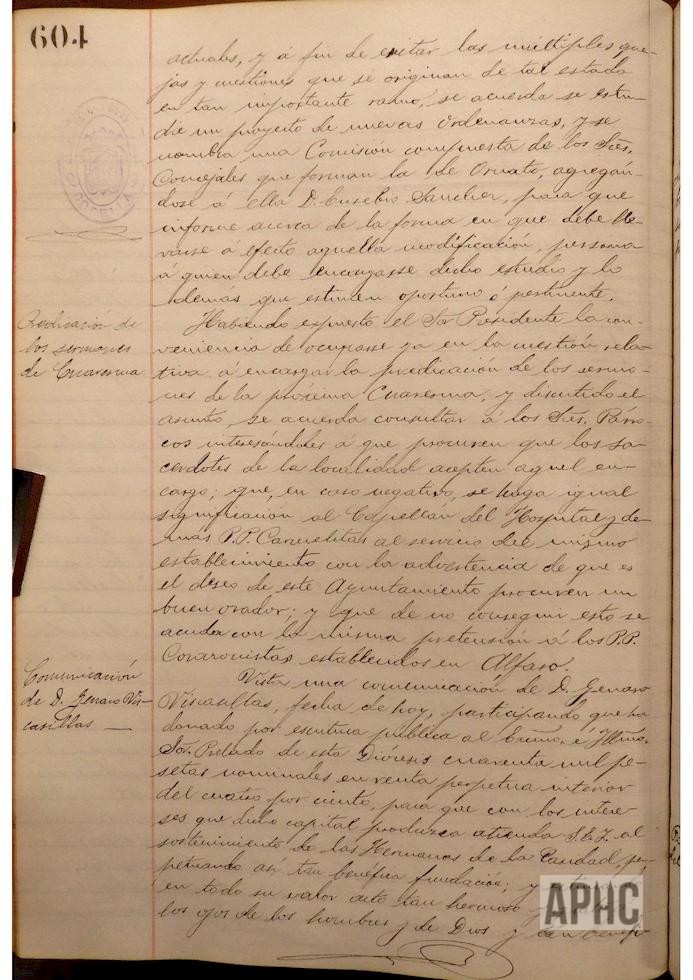 604
actuales, y á fin de evitar las múltiples que-
jas y cuestiones que se originan de tal estado
en tan importante ramo, se acuerda se estu-
die un proyecto de nuevas Ordenanzas, y se
nombra una Comisión compuesta de los Sres.
Concejales que forman la de Ornato, agregán-
dose á ella D. Eusebio Sanchez, para que
informe acerca de la forma en que debe lle-
varse á efecto aquella modificación, persona
á quien debe encargarse dicho estudio y lo
demás que estimen oportuno ó pertinente.
Predicación de
los sermones
de Cuaresma
Habiendo expuesto el Sor Presidente la con-
veniencia de ocuparse ya en la cuestión rela-
tiva á encargar la predicación de los sermo-
nes de la próxima Cuaresma, y discutido el
asunto, se acuerda consultar á los Sres. Párro-
cos interesándoles á que procuren que los sa-
cerdotes de la localidad acepten aquel en-
cargo; que, en caso negativo, se haga igual
significación al Capellán del Hospital y de-
más P.P. Carmelitas al servicio del mismo
establecimiento con la advertencia de que es
el deseo de este Ayuntamiento procuren un
buen orador; y que de no conseguir esto se
acuda con la misma pretensión á los P.P.
Corazonistas establecidos en Alfaro.
Comunicación
de D. Genaro Vis-
casillas
Vista una comunicación de D. Genaro
Viscasillas, fecha de hoy, participando que ha
donado por escritura pública al Excmo. é Iltmo.
Sor. Prelado de esta Diócesis cuarenta mil pe-
setas nominales en renta perpetua interior
del cuatro por ciento, para que con los intere-
ses que dicho capital produzca atienda S.E.I. al
sostenimiento de las Hermanas de la Caridad, per-
petuando así tan benéfica fundación; y
en todo su valor acto tan hermoso
los ojos de los hombres y de Dios y tan benefi-
APHC